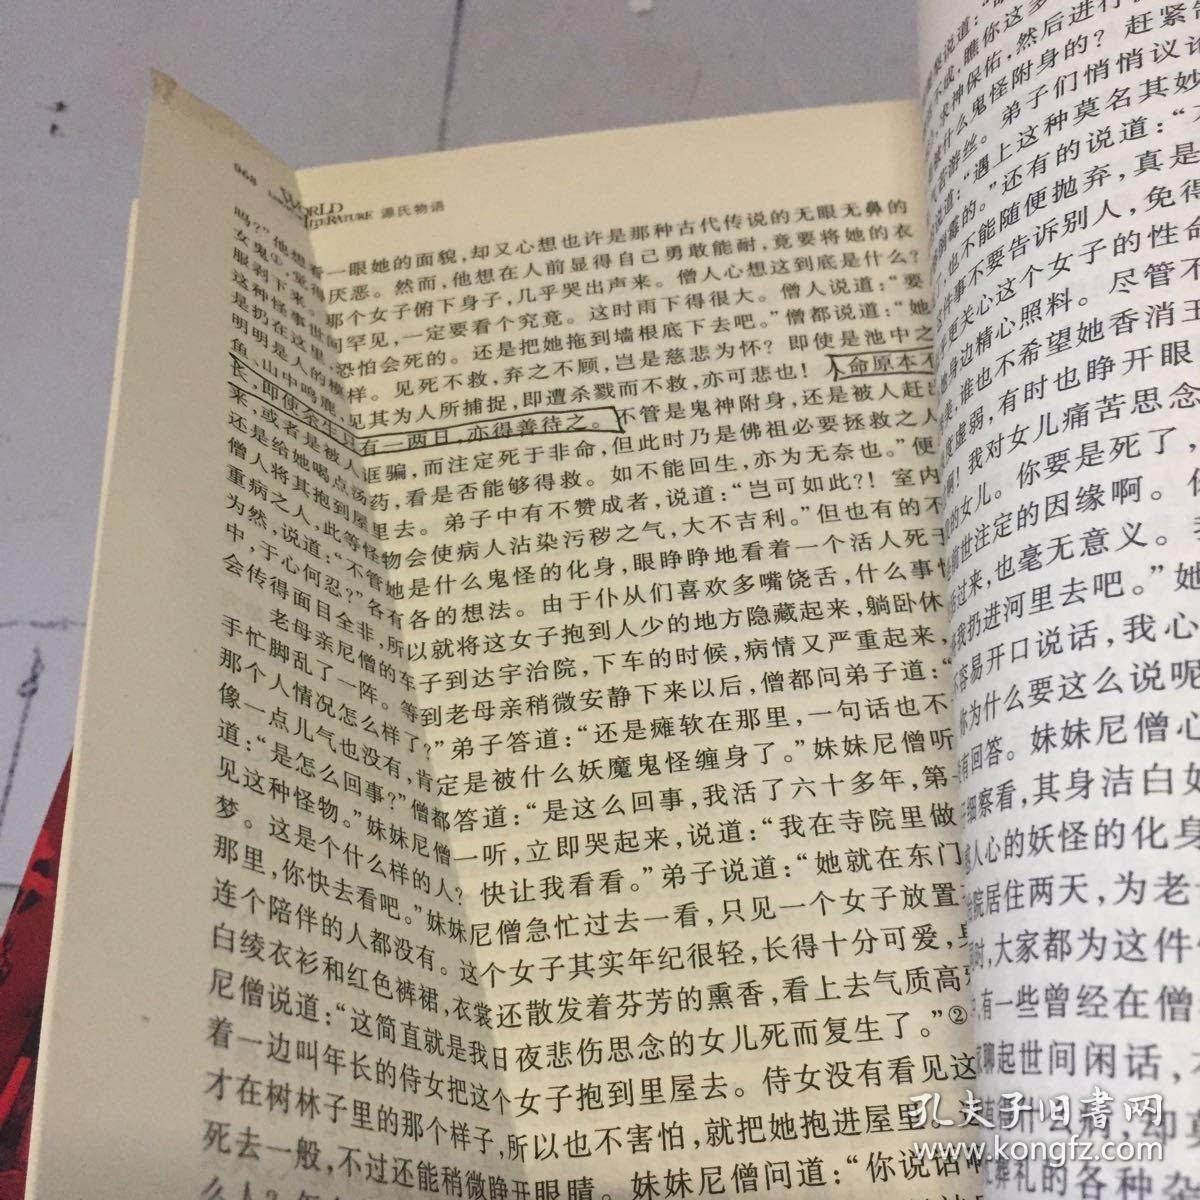 968 WORLD LITERATURE 源氏物语
吗？”他想看一眼她的面貌，却又心想也许是那种古代传说的无眼无鼻的
女鬼①，觉得厌恶。然而，他想在人前显得自己勇敢能耐，竟要将她的衣
服剥下来。那个女子俯下身子，几乎哭出声来。僧人心想这到底是什么？
这种怪事世间罕见，一定要看个究竟。这时雨下得很大。僧人说道：“要
是扔在这里，恐怕会死的。还是把她拖到墙根底下去吧。”僧都说道：“她
明明是人的模样。见死不救，弃之不顾，岂是慈悲为怀？即使是池中之
鱼、山中鸣鹿，见其为人所捕捉，即遭杀戮而不救，亦可悲也！人命原本不
长，即使余生只有一两日，亦得善待之。不管是鬼神附身，还是被人赶出
来，或者是被人诓骗，而注定死于非命，但此时乃是佛祖必要拯救之人
还是给她喝点汤药，看是否能够得救。如不能回生，亦为无奈也。”便
僧人将其抱到屋里去。弟子中有不赞成者，说道：“岂可如此？！室内
重病之人，此等怪物会使病人沾染污秽之气，大不吉利。”但也有的不
为然，说道：“不管她是什么鬼怪的化身，眼睁睁地看着一个活人死于
中，于心何忍？”各有各的想法。由于仆从们喜欢多嘴饶舌，什么事
会传得面目全非，所以就将这女子抱到人少的地方隐藏起来，躺卧休
老母亲尼僧的车子到达宇治院，下车的时候，病情又严重起来，
手忙脚乱了一阵。等到老母亲稍微安静下来以后，僧都问弟子道：“
那个人情况怎么样了？”弟子答道：“还是瘫软在那里，一句话也不
像一点儿气也没有，肯定是被什么妖魔鬼怪缠身了。”妹妹尼僧听
道：“是怎么回事？”僧都答道：“是这么回事，我活了六十多年，第一
见这种怪物。”妹妹尼僧一听，立即哭起来，说道：“我在寺院里做
梦。这是个什么样的人？快让我看看。”弟子说道：“她就在东门
那里，你快去看吧。”妹妹尼僧急忙过去一看，只见一个女子放置
连个陪伴的人都没有。这个女子其实年纪很轻，长得十分可爱，身
白绫衣衫和红色裤裙，衣裳还散发着芬芳的熏香，看上去气质高雅
尼僧说道：“这简直就是我日夜悲伤思念的女儿死而复生了。”②
着一边叫年长的侍女把这个女子抱到里屋去。侍女没有看见这
才在树林子里的那个样子，所以也不害怕，就把她抱进屋里。这
死去一般，不过还能稍微睁开眼睛。妹妹尼僧问道：“你说话啊
不成，瞧你这多
求神保佑，然后进行
被什么鬼怪附身的？赶紧
气若游丝。弟子们悄悄议论
说道：“遇上这种莫名其妙
倒霉的。”还有的说道：“
，也不能随便抛弃，真是
这件事不要告诉别人，免得
更关心这个女子的性命
身边精心照料。尽管不
美，谁也不希望她香消玉
虚弱，有时也睁开眼
啊！我对女儿痛苦思念
的女儿。你要是死了，
前世注定的因缘啊。你
过来，也毫无意义。
我扔进河里去吧。”她
不容易开口说话，我心
你为什么要这么说呢
有回答。妹妹尼僧心
仔细察看，其身洁白如
惑人心的妖怪的化身
治院居住两天，为老
时，大家都为这件
有一些曾经在僧
聊起世间闲话，
有得什么病，却
葬礼的各种杂
孔夫子旧书网
www.kongfz.com